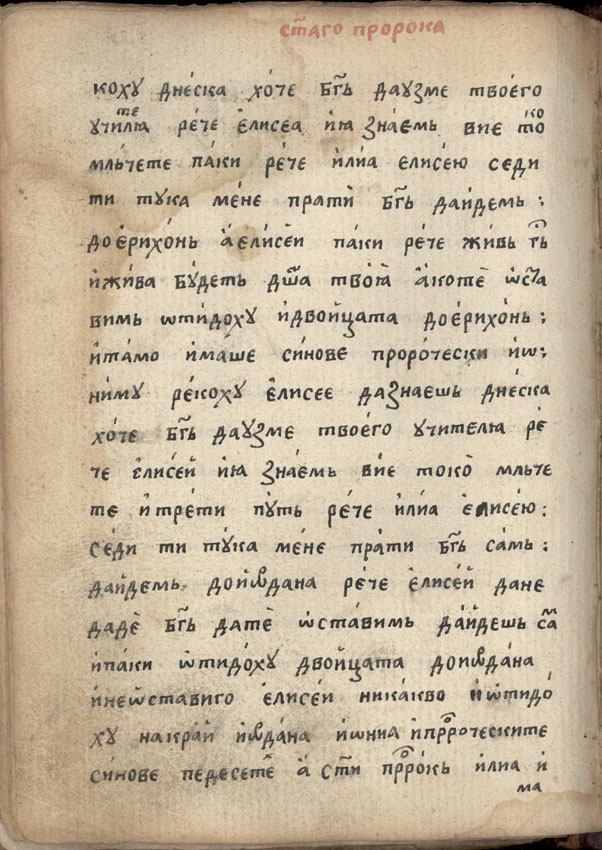 ст҃аго пророка
коху дне́ска хо́че бг҃ь да узме твое́го
учителꙗ ре́че е҆лисеа и҆ꙗ зна́емь вие токо
мльчете па́ки ре́че и҆лиа елисе́ю седи
ти тука ме́не прати бг҃ь да и҆демь :
до е҆рихо́нь а҆ елисе́и па́ки рече жи́вь гь҃
и҆ жи́ва бу́деть дш҃а твоꙗ̀ а҆ко те ѡ҆ста
вимь ѡти́доху и҆ двои҆цата до е҆рихо́нь :
и҆ та́мо и҆ма́ше си́нове проро́чески и҆ ѡ:
ни́му ре́коху е҆лисее да знаешь дне́ска
хо́че бг҃ь да узме твоего учителю ре́
че е҆лисе́й и҆ꙗ зна́емь вие токо̀ мльче
те и҆ тре́ти путь ре́че и҆лиа е҆лисе́ю :
се́ди ти ту́ка ме́не пра́ти бг҃ь са́мь :
да и҆демь до и҆ѡ҆рдана рече е҆лисе́й да не
дадѐ бг҃ь да тѐ ѡ҆ста́вимь да́и҆дешь са́м
и҆ па́ки ѡ҆тидо́ху двои҆цата до и҆ѡрда́на
и҆ не ѡ҆стави го е҆лисе́и ника́кво и҆ ѡ҆тидо́
ху на кра́й и҆ѡрда́на и҆ ѡ҆ниа и҆ прⷪ҇роческите
си́нове педесетѐ а҆ ст҃и прⷪ҇рокь и҆лиа и҆
ма